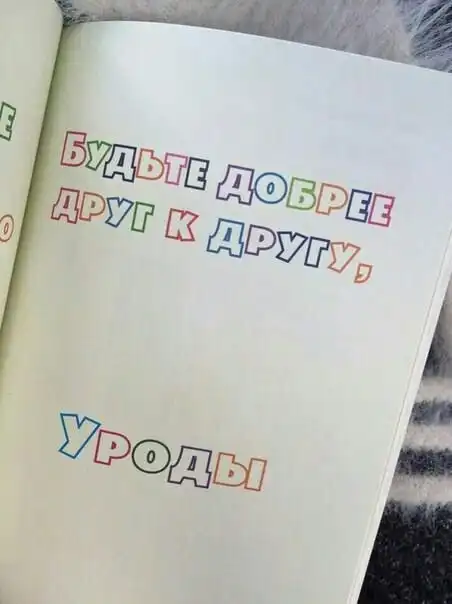 Е
О
БУДЬТЕ ДОБРЕЕ
ДРУГ К ДРУГУ,
УРОДЫ